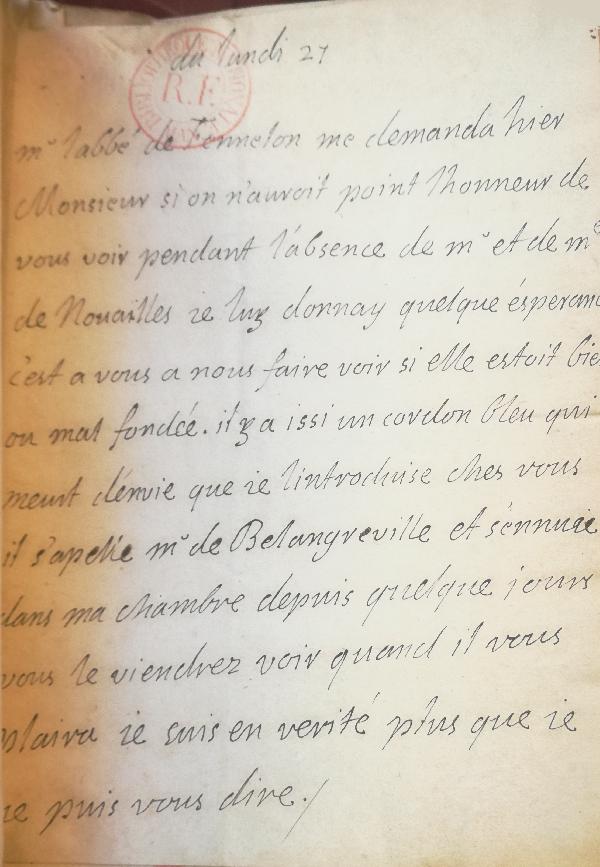 du lundi 27
mr l'abbé de Fennelon me demanda hier
Monsieur si on n'auroit point l'honneur de
vous voir pendant l'absence de mr et de me
de Nouailles ie luy donnay quelque ésperan
c'est a vous a nous faire voir si elle estoit bie
ou mal fondée. il y a issi un cordon bleu qui
meurt d'envie que ie l'introduise ches vous
il s'apelle mr de Belangreville et s'ennuie
dans ma chambre depuis quelque jours
vous le viendrez voir quand il vous
plaira ie suis en verité plus que ie
ne puis vous dire./
R.F.